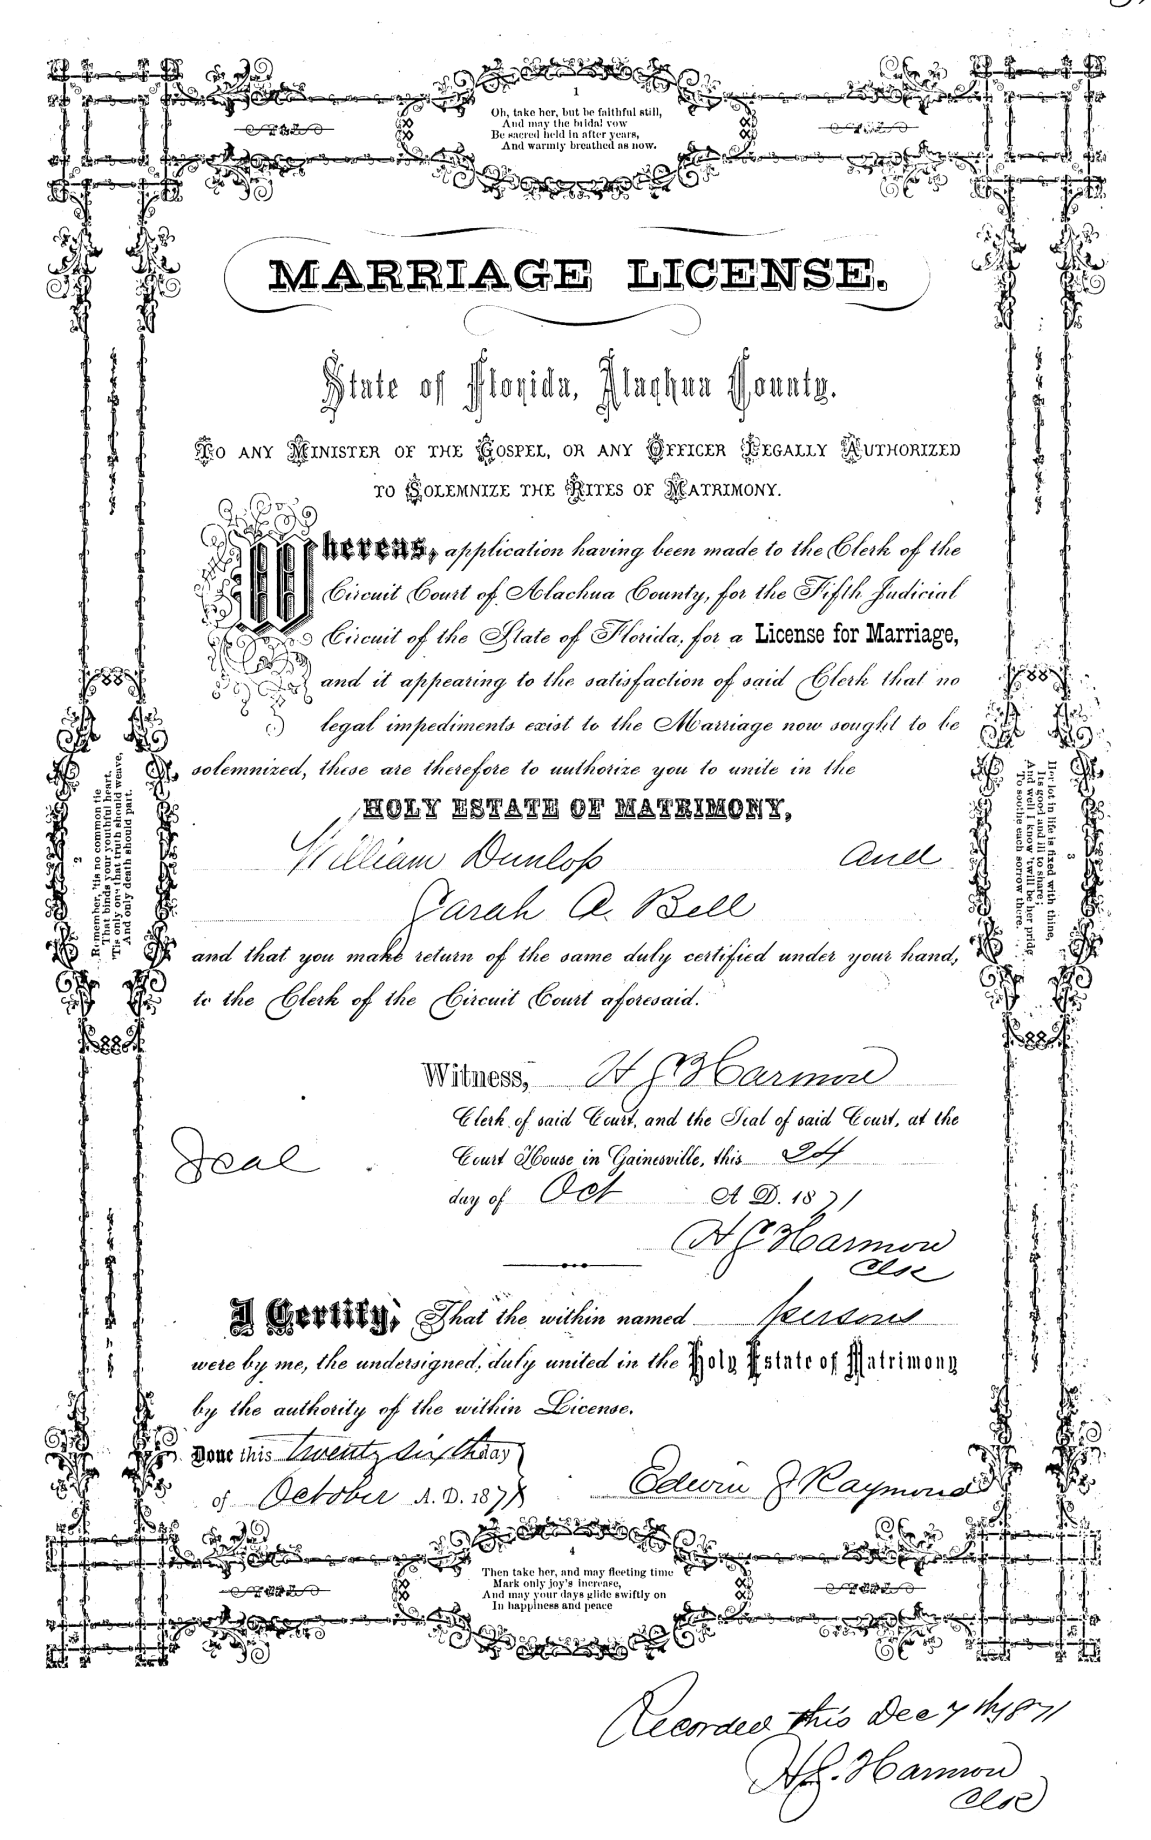 1
Oh, take her, but be faithful still,
And may the bridal vow
Be sacred held in after years,
And warmly breathed as now.
MARRIAGE LICENSE.
State of Florida, Alachua County.
TO ANY MINISTER OF THE GOSPEL, OR ANY OFFICER LEGALLY AUTHORIZED
TO SOLEMNIZE THE RITES OF MATRIMONY.
Whereas, application having been made to the Clerk of the
Circuit Court of Alachua County, for the Fifth Judicial
Circuit of the State of Florida, for a License for Marriage,
and it appearing to the satisfaction of said Clerk that no
legal impediments exist to the Marriage now sought to be
solemnized, these are therefore to authorize you to unite in the
HOLY ESTATE OF MATRIMONY,
William Dunlop and
Sarah A. Bell
and that you make return of the same duly certified under your hand,
to the Clerk of the Circuit Court aforesaid.
2
Remember, 'tis no common tie
That binds your youthful heart,
'Tis only one that truth should weave,
And only death should part.
3
Her lot in life is fixed with thine,
Its good and ill to share;
And well I know 'twill be her pride
To soothe each sorrow there.
Witness, H J Harmon
Clerk of said Court, and the Seal of said Court, at the
Court House in Gainesville, this 24
day of Oct A D. 1871
Seal
H J Harmon
Clk
I Certify, That the within named persons
were by me, the undersigned, duly united in the Holy Estate of Matrimony
by the authority of the within License.
Done this twenty sixth day
of October A. D. 1871
Edwin J Raymond
4
Then take her, and may fleeting time
Mark only joy's increase,
And may your days glide swiftly on
In happiness and peace
Recorded this Dec 7th 1871
H J. Harmon
Clk